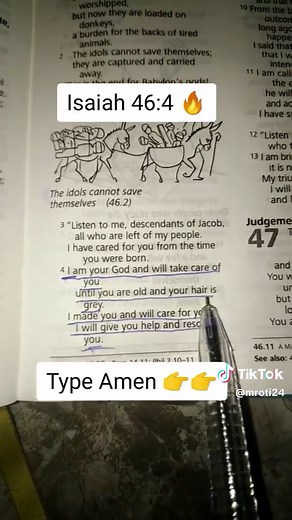 worshipped,
but now they are loaded on
donkeys,
a burden for the backs of tired
animals.
2 The idols cannot save themselves;
they are captured and carried
away.
Isaiah 46:4 🔥
The idols cannot save
themselves (46.2)
3 "Listen to me, descendants of Jacob,
all who are left of my people.
I have cared for you from the time
you were born.
4 I am your God and will take care of
you
until you are old and your hair is
grey.
I made you and will care for
I will give you help and
you.
Type Amen 👉👉
10 From the
outcom
long ago
happe
I said tha
that I w
inten
11 I am call
the e
He will
and ac
I have s
12 "Listen
who t
13 I am bri
it is n
My triu
I will
and
Judgeme
47
and
You w
un
but
lo
You a
46.11
See also:
TikTok
@mroti24